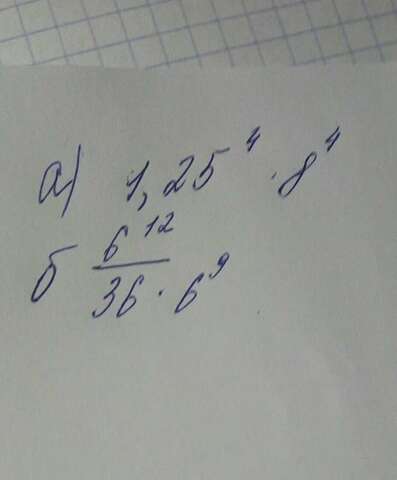 а) 1,25⁴ · 8⁴
б 6¹² / 36 · 6⁹